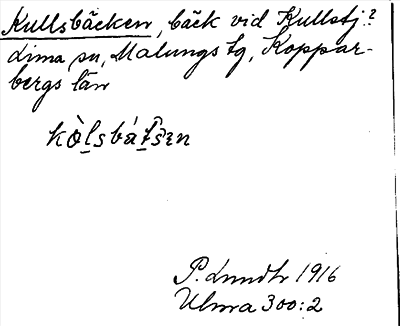 Kullsbäcken, bäck vid Kullstj.?
Lima sn, Malungs tg, Koppar-
bergs län
kòl̠sbát̠s̃ɛn
P. Lundh 1916
Ulma 300:2